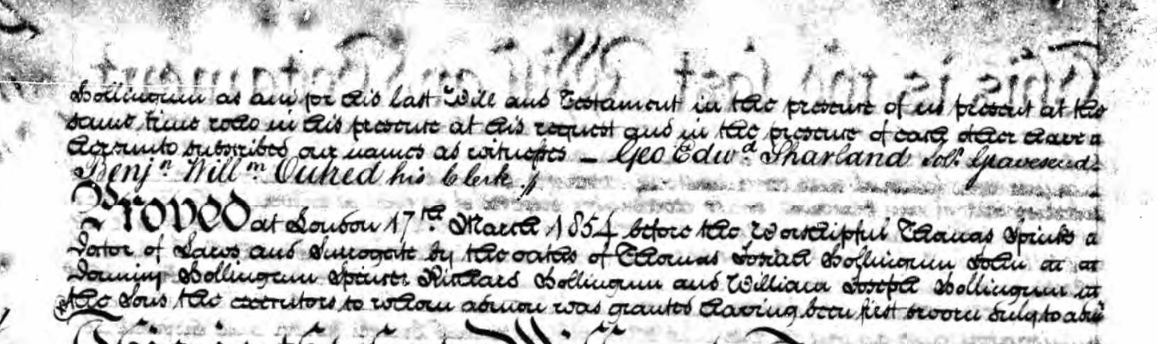 Hollingum as and for his last Will and Testament in the presence of us present at the
same time who in his presence at his request and in the presence of each other have
hereunto subscribed our names as witnesses – Geo Edwd. Sharland Solr. Gravesend
Benjn. Willm. his Clerk
Proved at London 17th March 1854 before the Worshipful Thomas Spinks
Doctor of Laws and Surrogate by the oaths of Thomas Josiah Hollingum John
Hollingum Spencer Richard Hollingum and William Joseph Hollingum
the Sons the executors to whom admon was granted having been first sworn duly to admr